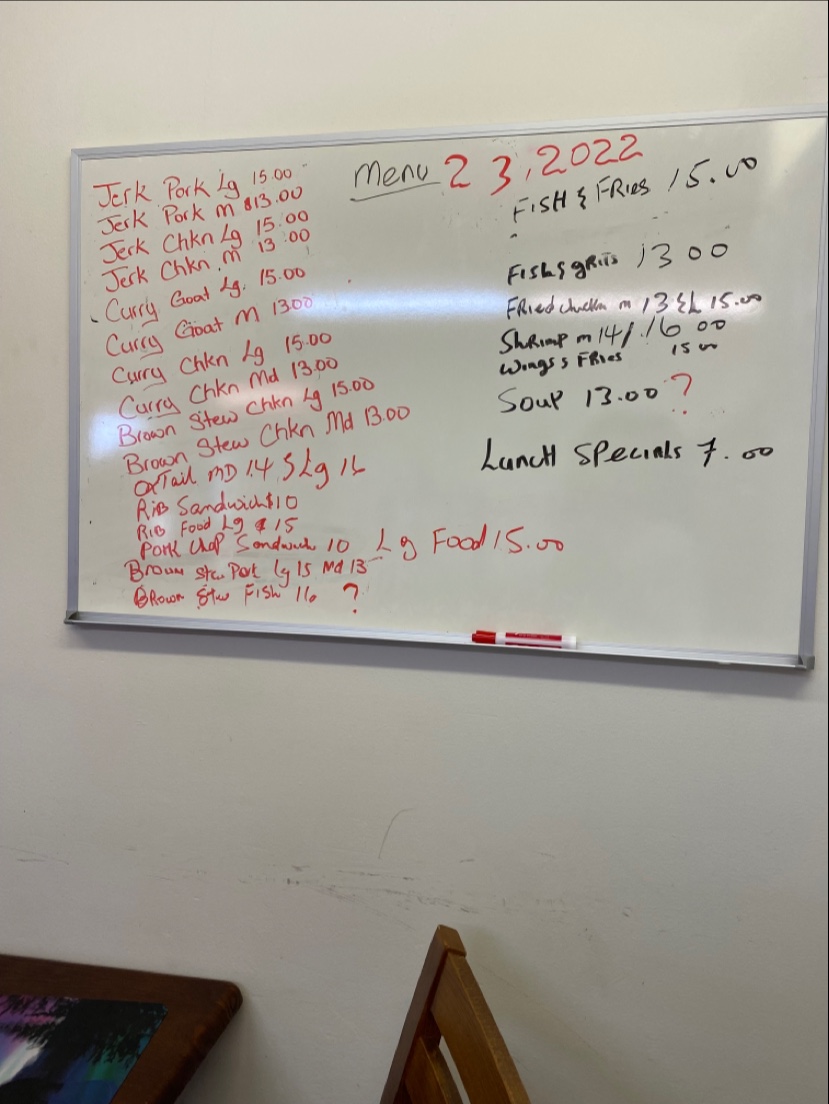 Menu 2 3, 2022
Jerk Pork Lg 15.00
Jerk Pork m $13.00
Jerk Chkn Lg 15.00
Jerk Chkn. m 13.00
Curry Goat Lg. 15.00
Curry Goat m 1300
Curry Chkn Lg 15.00
Curry Chkn Md 13.00
Brown Stew Chkn Lg 15.00
Brown Stew Chkn Md 13.00
OxTail MD 14 $ Lg 16
RiB Sandwich $10
RiB Food Lg $15
Pork Chop Sandwich 10 Lg Food 15.00
Brown Stew Pork Lg 15 Md 13
Brown Stew FISH 16 ?
FISH & FRies 15.00
Fish & gRits 13 00
FRied chicken m 13 & L 15.00
ShRimp m 14/ 16 00
Wings & FRies 15 00
Soup 13.00 ?
LuncH Specials 7.00